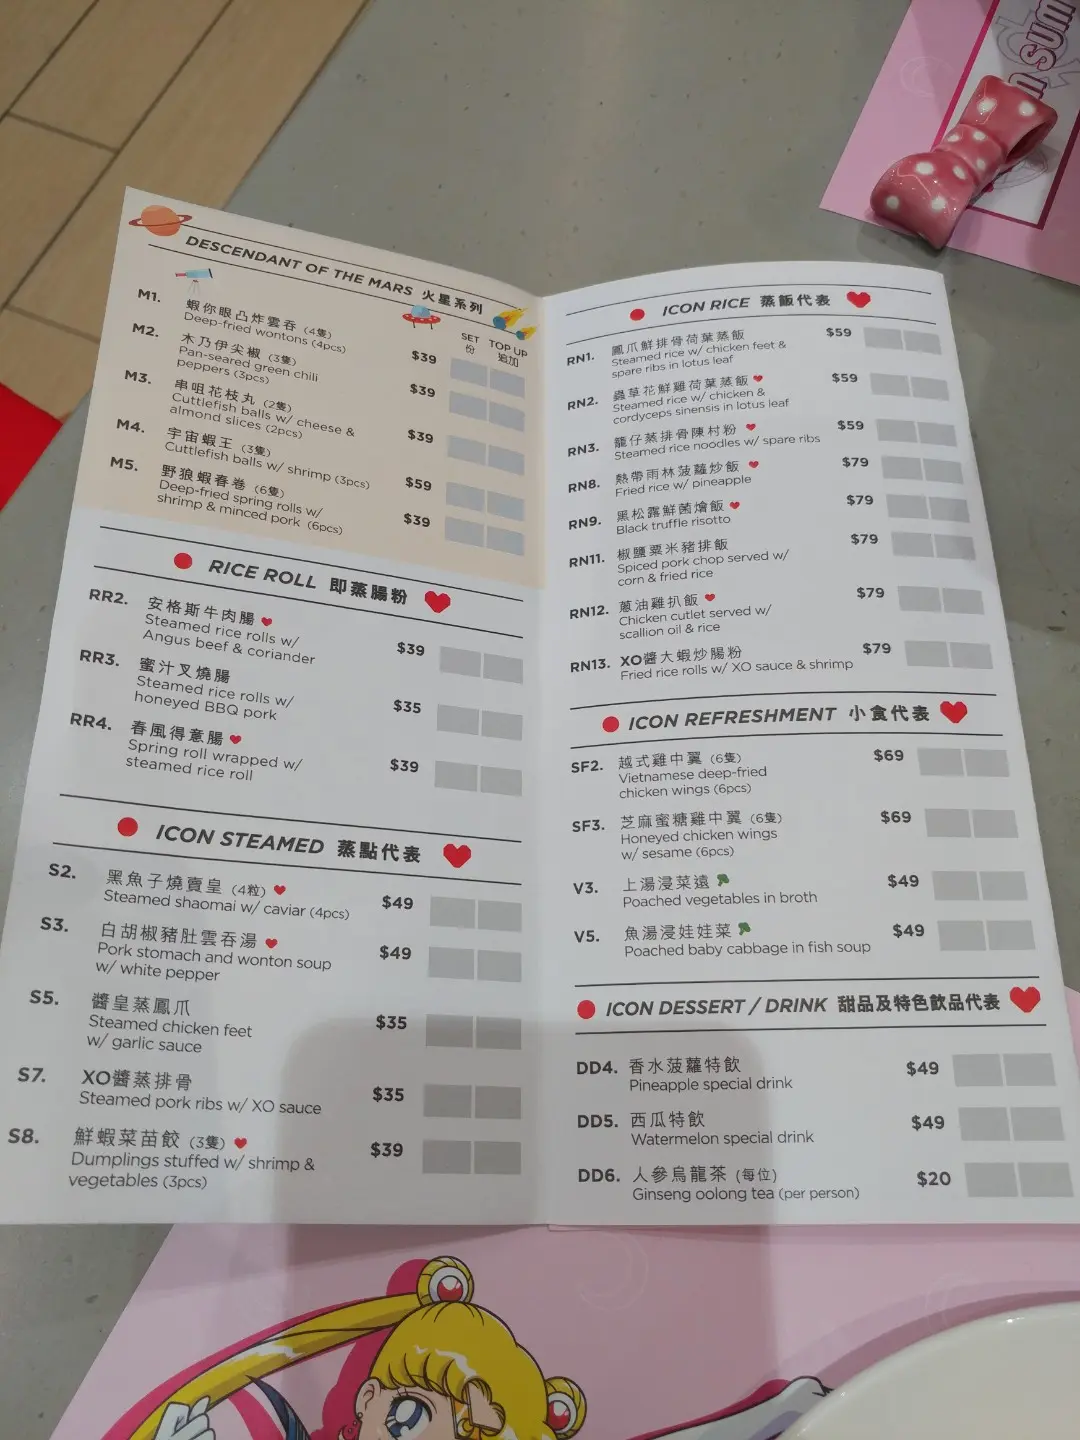 DESCENDANT OF THE MARS 火星系列
SET 份
TOP UP 追加
M1. 蝦你眼凸炸雲吞 (4隻)
Deep-fried wontons (4pcs)
$39
M2. 木乃伊尖椒 (3隻)
Pan-seared green chili
peppers (3pcs)
$39
M3. 串咀花枝丸 (2隻)
Cuttlefish balls w/ cheese &
almond slices (2pcs)
$39
M4. 宇宙蝦王 (3隻)
Cuttlefish balls w/ shrimp (3pcs)
$59
M5. 野狼蝦春卷 (6隻)
Deep-fried spring rolls w/
shrimp & minced pork (6pcs)
$39
RICE ROLL 即蒸腸粉
RR2. 安格斯牛肉腸
Steamed rice rolls w/
Angus beef & coriander
$39
RR3. 蜜汁叉燒腸
Steamed rice rolls w/
honeyed BBQ pork
$35
RR4. 春風得意腸
Spring roll wrapped w/
steamed rice roll
$39
ICON STEAMED 蒸點代表
S2. 黑魚子燒賣皇 (4粒)
Steamed shaomai w/ caviar (4pcs)
$49
S3. 白胡椒豬肚雲吞湯
Pork stomach and wonton soup
w/ white pepper
$49
S5. 醬皇蒸鳳爪
Steamed chicken feet
w/ garlic sauce
$35
S7. XO醬蒸排骨
Steamed pork ribs w/ XO sauce
$35
S8. 鮮蝦菜苗餃 (3隻)
Dumplings stuffed w/ shrimp &
vegetables (3pcs)
$39
ICON RICE 蒸飯代表
RN1. 鳳爪鮮排骨荷葉蒸飯
Steamed rice w/ chicken feet &
spare ribs in lotus leaf
$59
RN2. 蟲草花鮮雞荷葉蒸飯
Steamed rice w/ chicken &
cordyceps sinensis in lotus leaf
$59
RN3. 籠仔蒸排骨陳村粉
Steamed rice noodles w/ spare ribs
$59
RN8. 熱帶雨林菠蘿炒飯
Fried rice w/ pineapple
$79
RN9. 黑松露鮮菌燴飯
Black truffle risotto
$79
RN11. 椒鹽粟米豬排飯
Spiced pork chop served w/
corn & fried rice
$79
RN12. 蔥油雞扒飯
Chicken cutlet served w/
scallion oil & rice
$79
RN13. XO醬大蝦炒腸粉
Fried rice rolls w/ XO sauce & shrimp
$79
ICON REFRESHMENT 小食代表
SF2. 越式雞中翼 (6隻)
Vietnamese deep-fried
chicken wings (6pcs)
$69
SF3. 芝麻蜜糖雞中翼 (6隻)
Honeyed chicken wings
w/ sesame (6pcs)
$69
V3. 上湯浸菜遠
Poached vegetables in broth
$49
V5. 魚湯浸娃娃菜
Poached baby cabbage in fish soup
$49
ICON DESSERT / DRINK 甜品及特色飲品代表
DD4. 香水菠蘿特飲
Pineapple special drink
$49
DD5. 西瓜特飲
Watermelon special drink
$49
DD6. 人參烏龍茶 (每位)
Ginseng oolong tea (per person)
$20